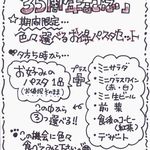 35周年ありがとう♪
★期間限定…
色々選べるお得パスタセット
♥夕方5時から…
お好みの
パスタ1品
プラス
この中から
③つ選べる!!
・ミニサラダ
・ミニグラスワイン
(赤・白)
・ミニ生ビール
・前菜
・食後のコーヒー
(紅茶)
・デザート
♥この機会に色々
食べてみて下さい